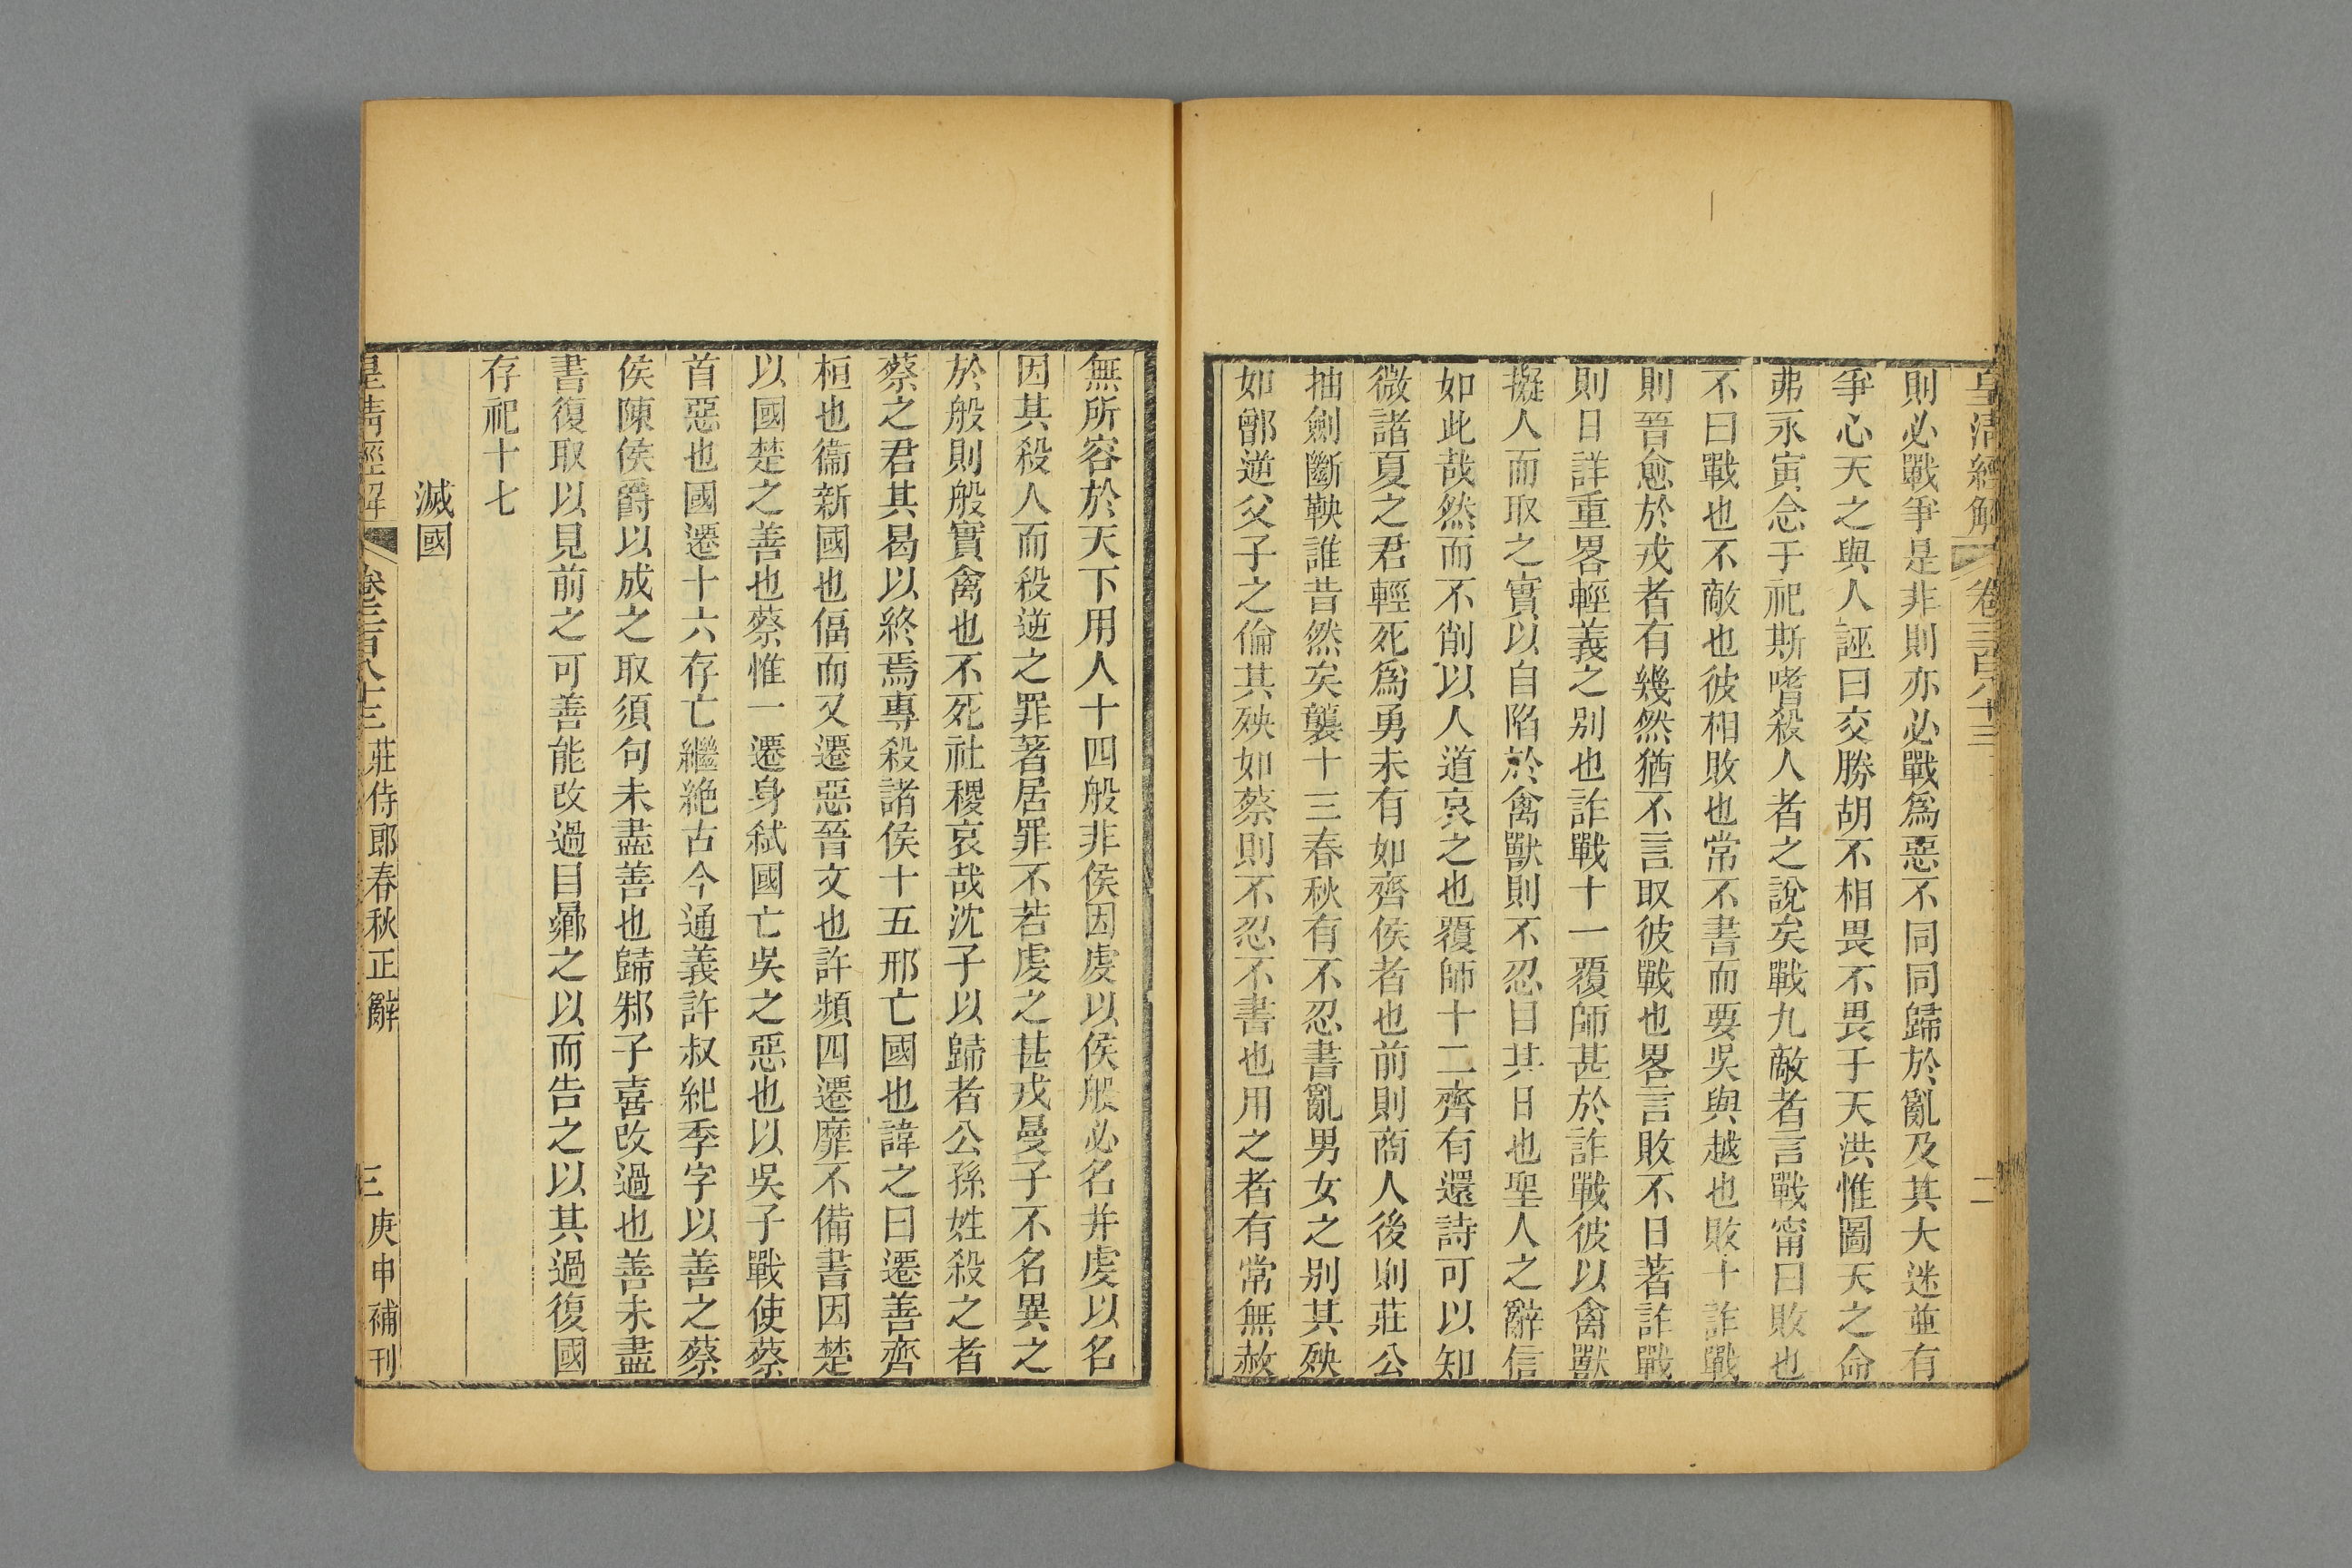 皇清經解 卷三百八十三 二
則必戰爭是非則亦必戰爲惡不同同歸於亂及其大迷並有
爭心天之與人誣曰交勝胡不相畏不畏于天洪惟圖天之命
弗永寅念于祀斯嗜殺人者之說矣戰九敵者言戰甯曰敗也
不曰戰也不敵也彼相敗也常不書而要吳與越也敗十詐戰
則晉愈於戎者有幾然猶不言取彼戰也畧言敗不日著詐戰
則日詳重畧輕義之别也詐戰十一覆師甚於詐戰彼以禽獸
擬人而取之實以自陷於禽獸則不忍目其日也聖人之辭信
如此哉然而不削以人道哀之也覆師十二齊有還詩可以知
微諸夏之君輕死爲勇未有如齊侯者也前則商人後則莊公
抽劍斷鞅誰昔然矣襲十三春秋有不忍書亂男女之别其殃
如鄫逆父子之倫其殃如蔡則不忍不書也用之者有常無赦
無所容於天下用人十四般非侯因虔以侯般必名并虔以名
因其殺人而殺逆之罪著居罪不若虔之甚戎曼子不名異之
於般則般實禽也不死社稷哀哉沈子以歸者公孫姓殺之者
蔡之君其曷以終焉專殺諸侯十五邢亡國也諱之曰遷善齊
桓也衞新國也偪而又遷惡晉文也許頻四遷靡不備書因楚
以國楚之善也蔡惟一遷身弑國亡吳之惡也以吳子戰使蔡
首惡也國遷十六存亡繼絶古今通義許叔紀季字以善之蔡
侯陳侯爵以成之取須句未盡善也歸邾子喜改過也善未盡
書復取以見前之可善能改過目鄹之以而告之以其過復國
存祀十七
滅國
皇清經解 卷三百八十三 莊侍郎春秋正辭 三 庚申補刊